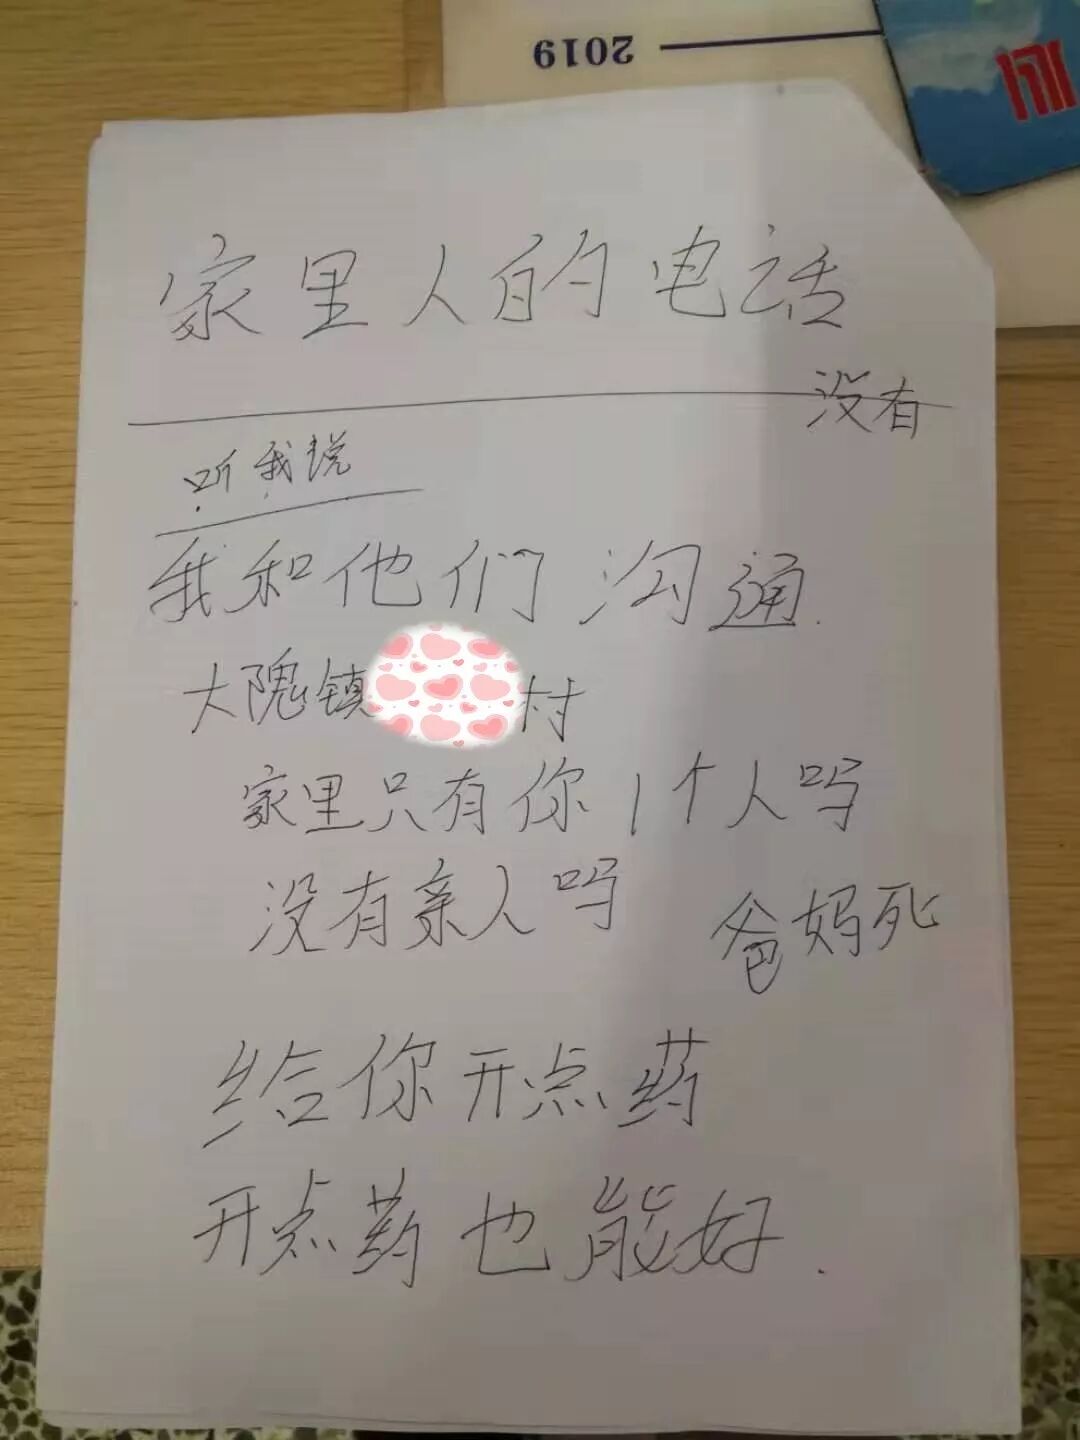 2019
家里人的电话
没有
听我说
我和他们沟通.
大隗镇 村
家里只有你1个人吗
没有亲人吗
爸妈死
给你开点药
开点药也能好.